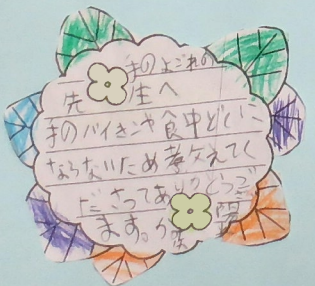 手のよごれの
先生へ
手のバイキンや食中どくに
ならないため教えてく
ださってありがとうご
ます。